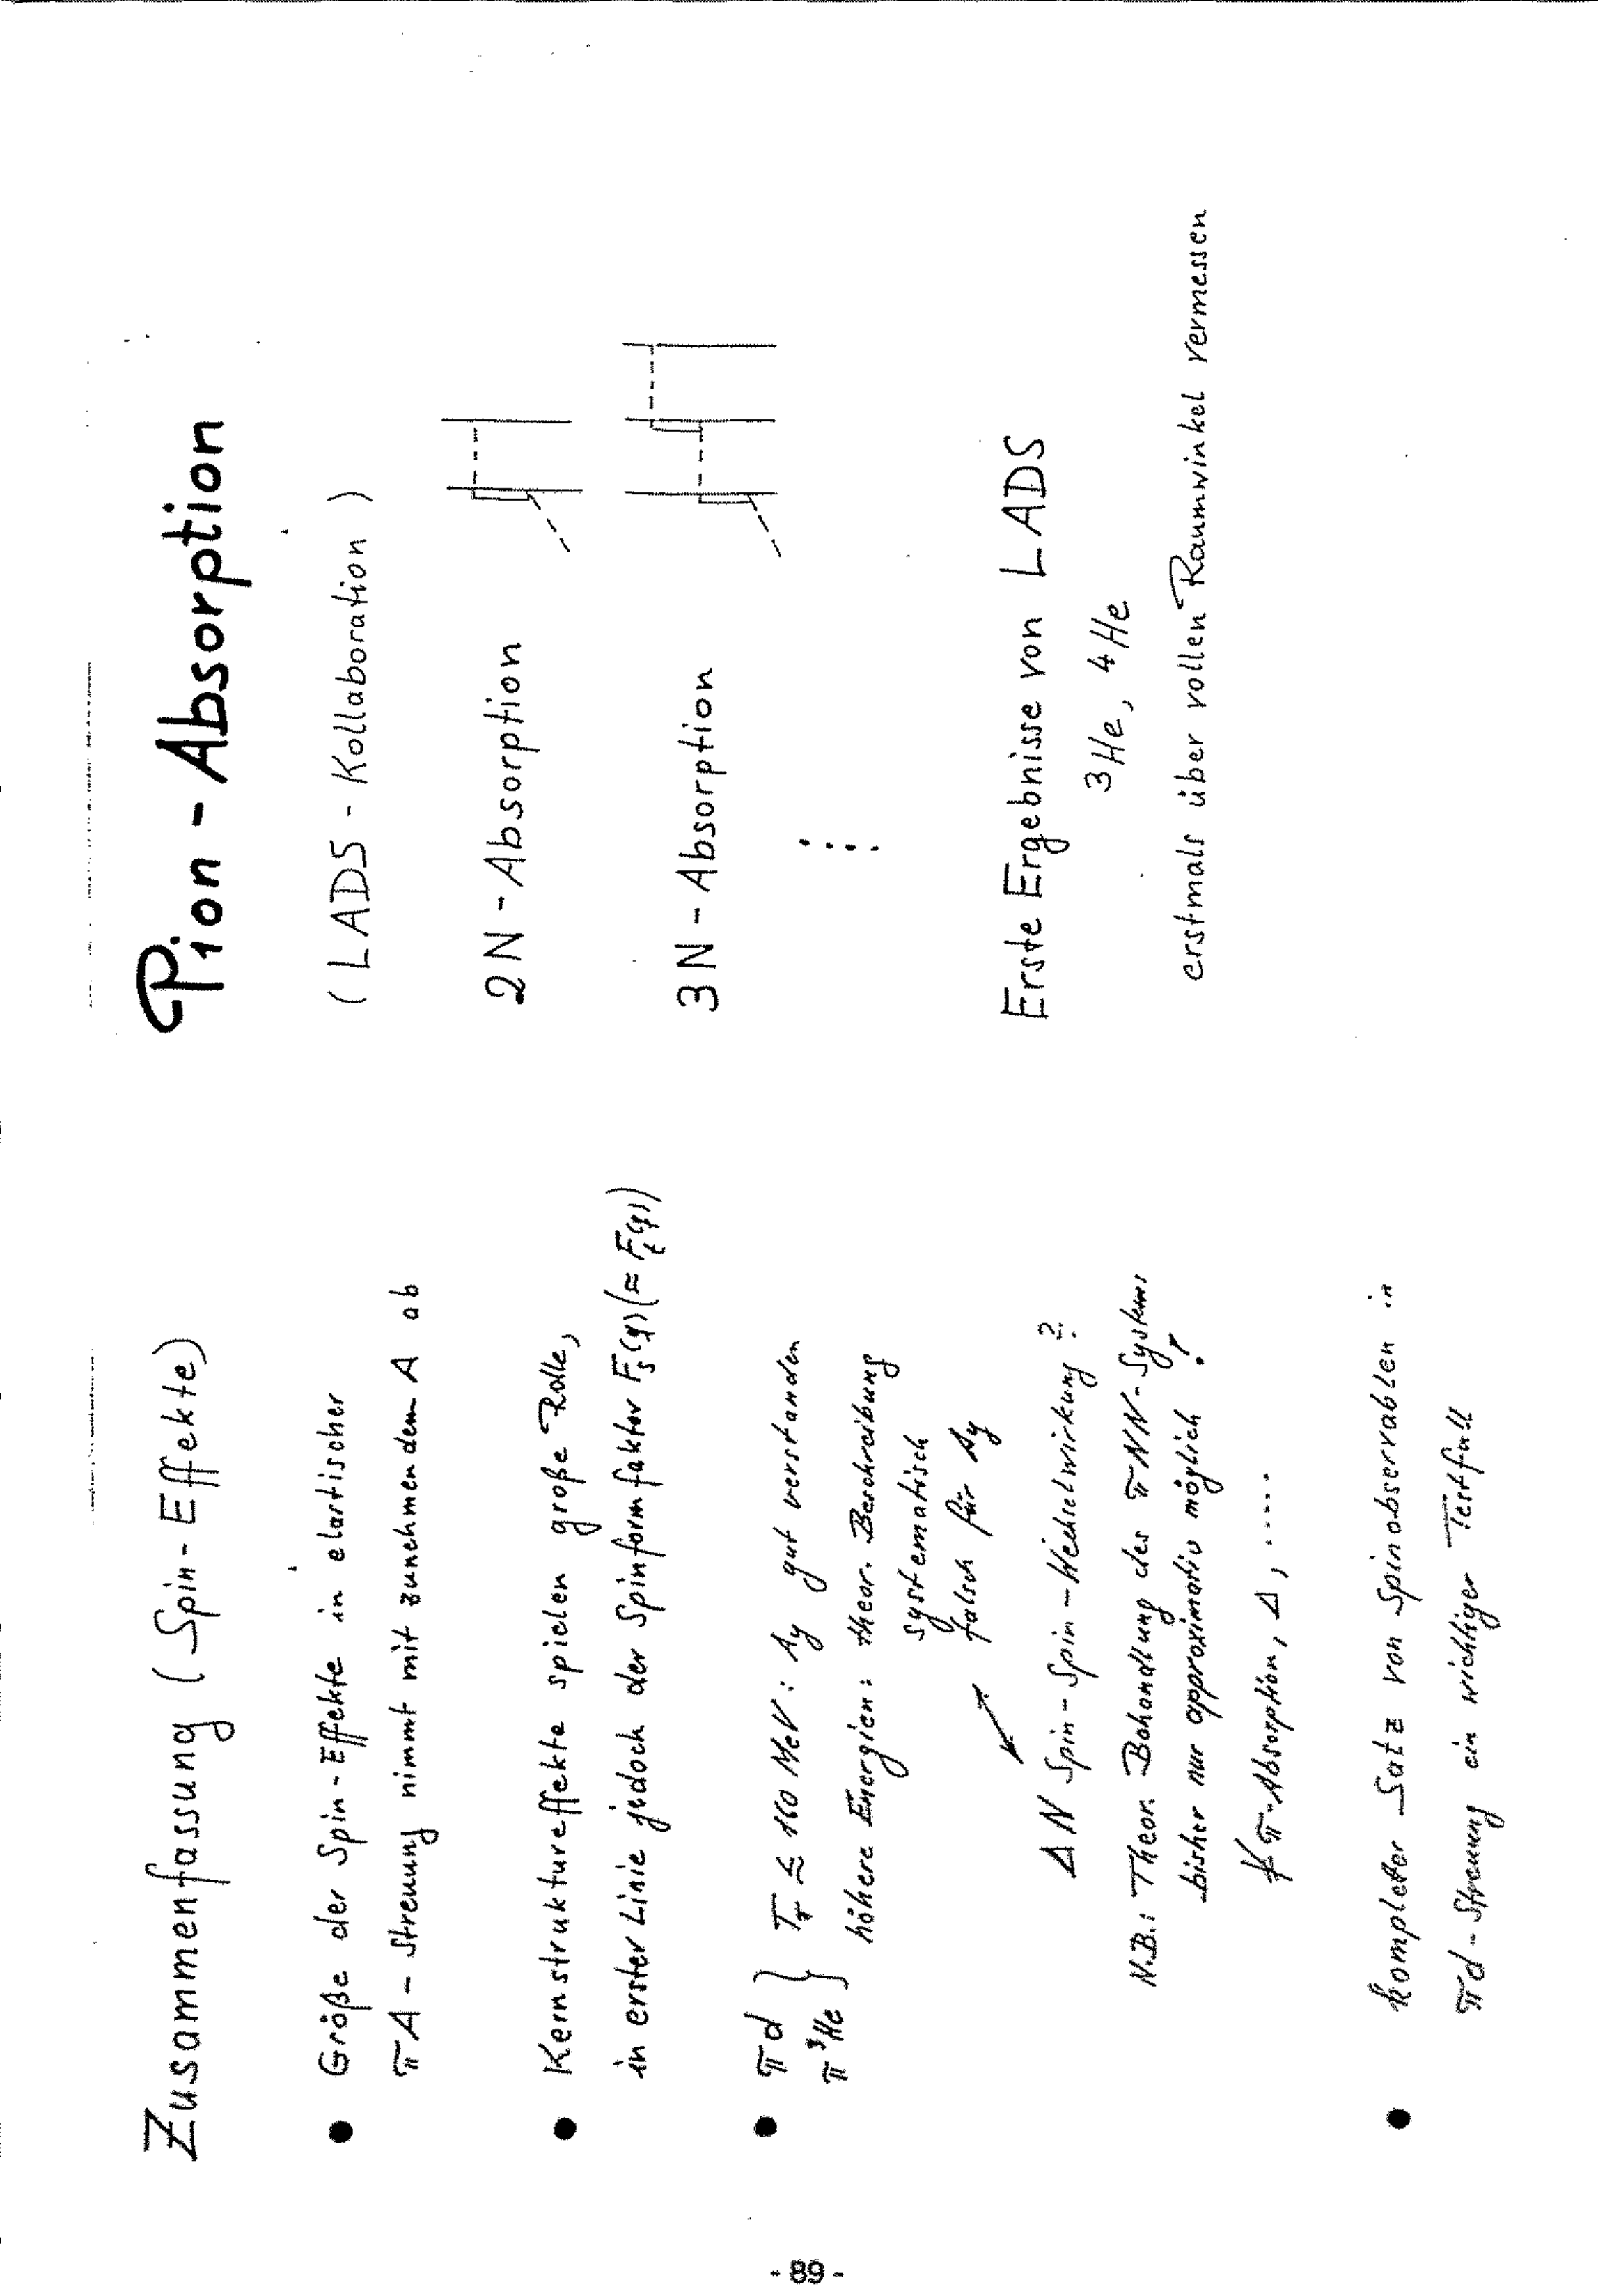 Zusammenfassung (Spin-Effekte)
● Größe der Spin-Effekte in elastischer
πA - Streuung nimmt mit zunehmendem A ab
● Kernstruktureffekte spielen große Rolle,
in erster Linie jedoch der Spinformfaktor Fs(q) (≈ Ft(q))
● πd } Tπ ≤ 160 MeV: Ay gut verstanden
π³He } höhere Energien: theor. Beschreibung
systematisch
falsch für Ay
ΔN Spin-Spin-Wechselwirkung ?
N.B.: Theor. Behandlung des πNN-Systems
bisher nur approximativ möglich !
π-Absorption, Δ, .....
● kompletter Satz von Spinobservablen in
πd-Streuung ein wichtiger Testfall
Pion - Absorption
( LADS - Kollaboration )
2N - Absorption
3N - Absorption
Erste Ergebnisse von LADS
³He, ⁴He
erstmals über vollen Raumwinkel vermessen
- 89 -